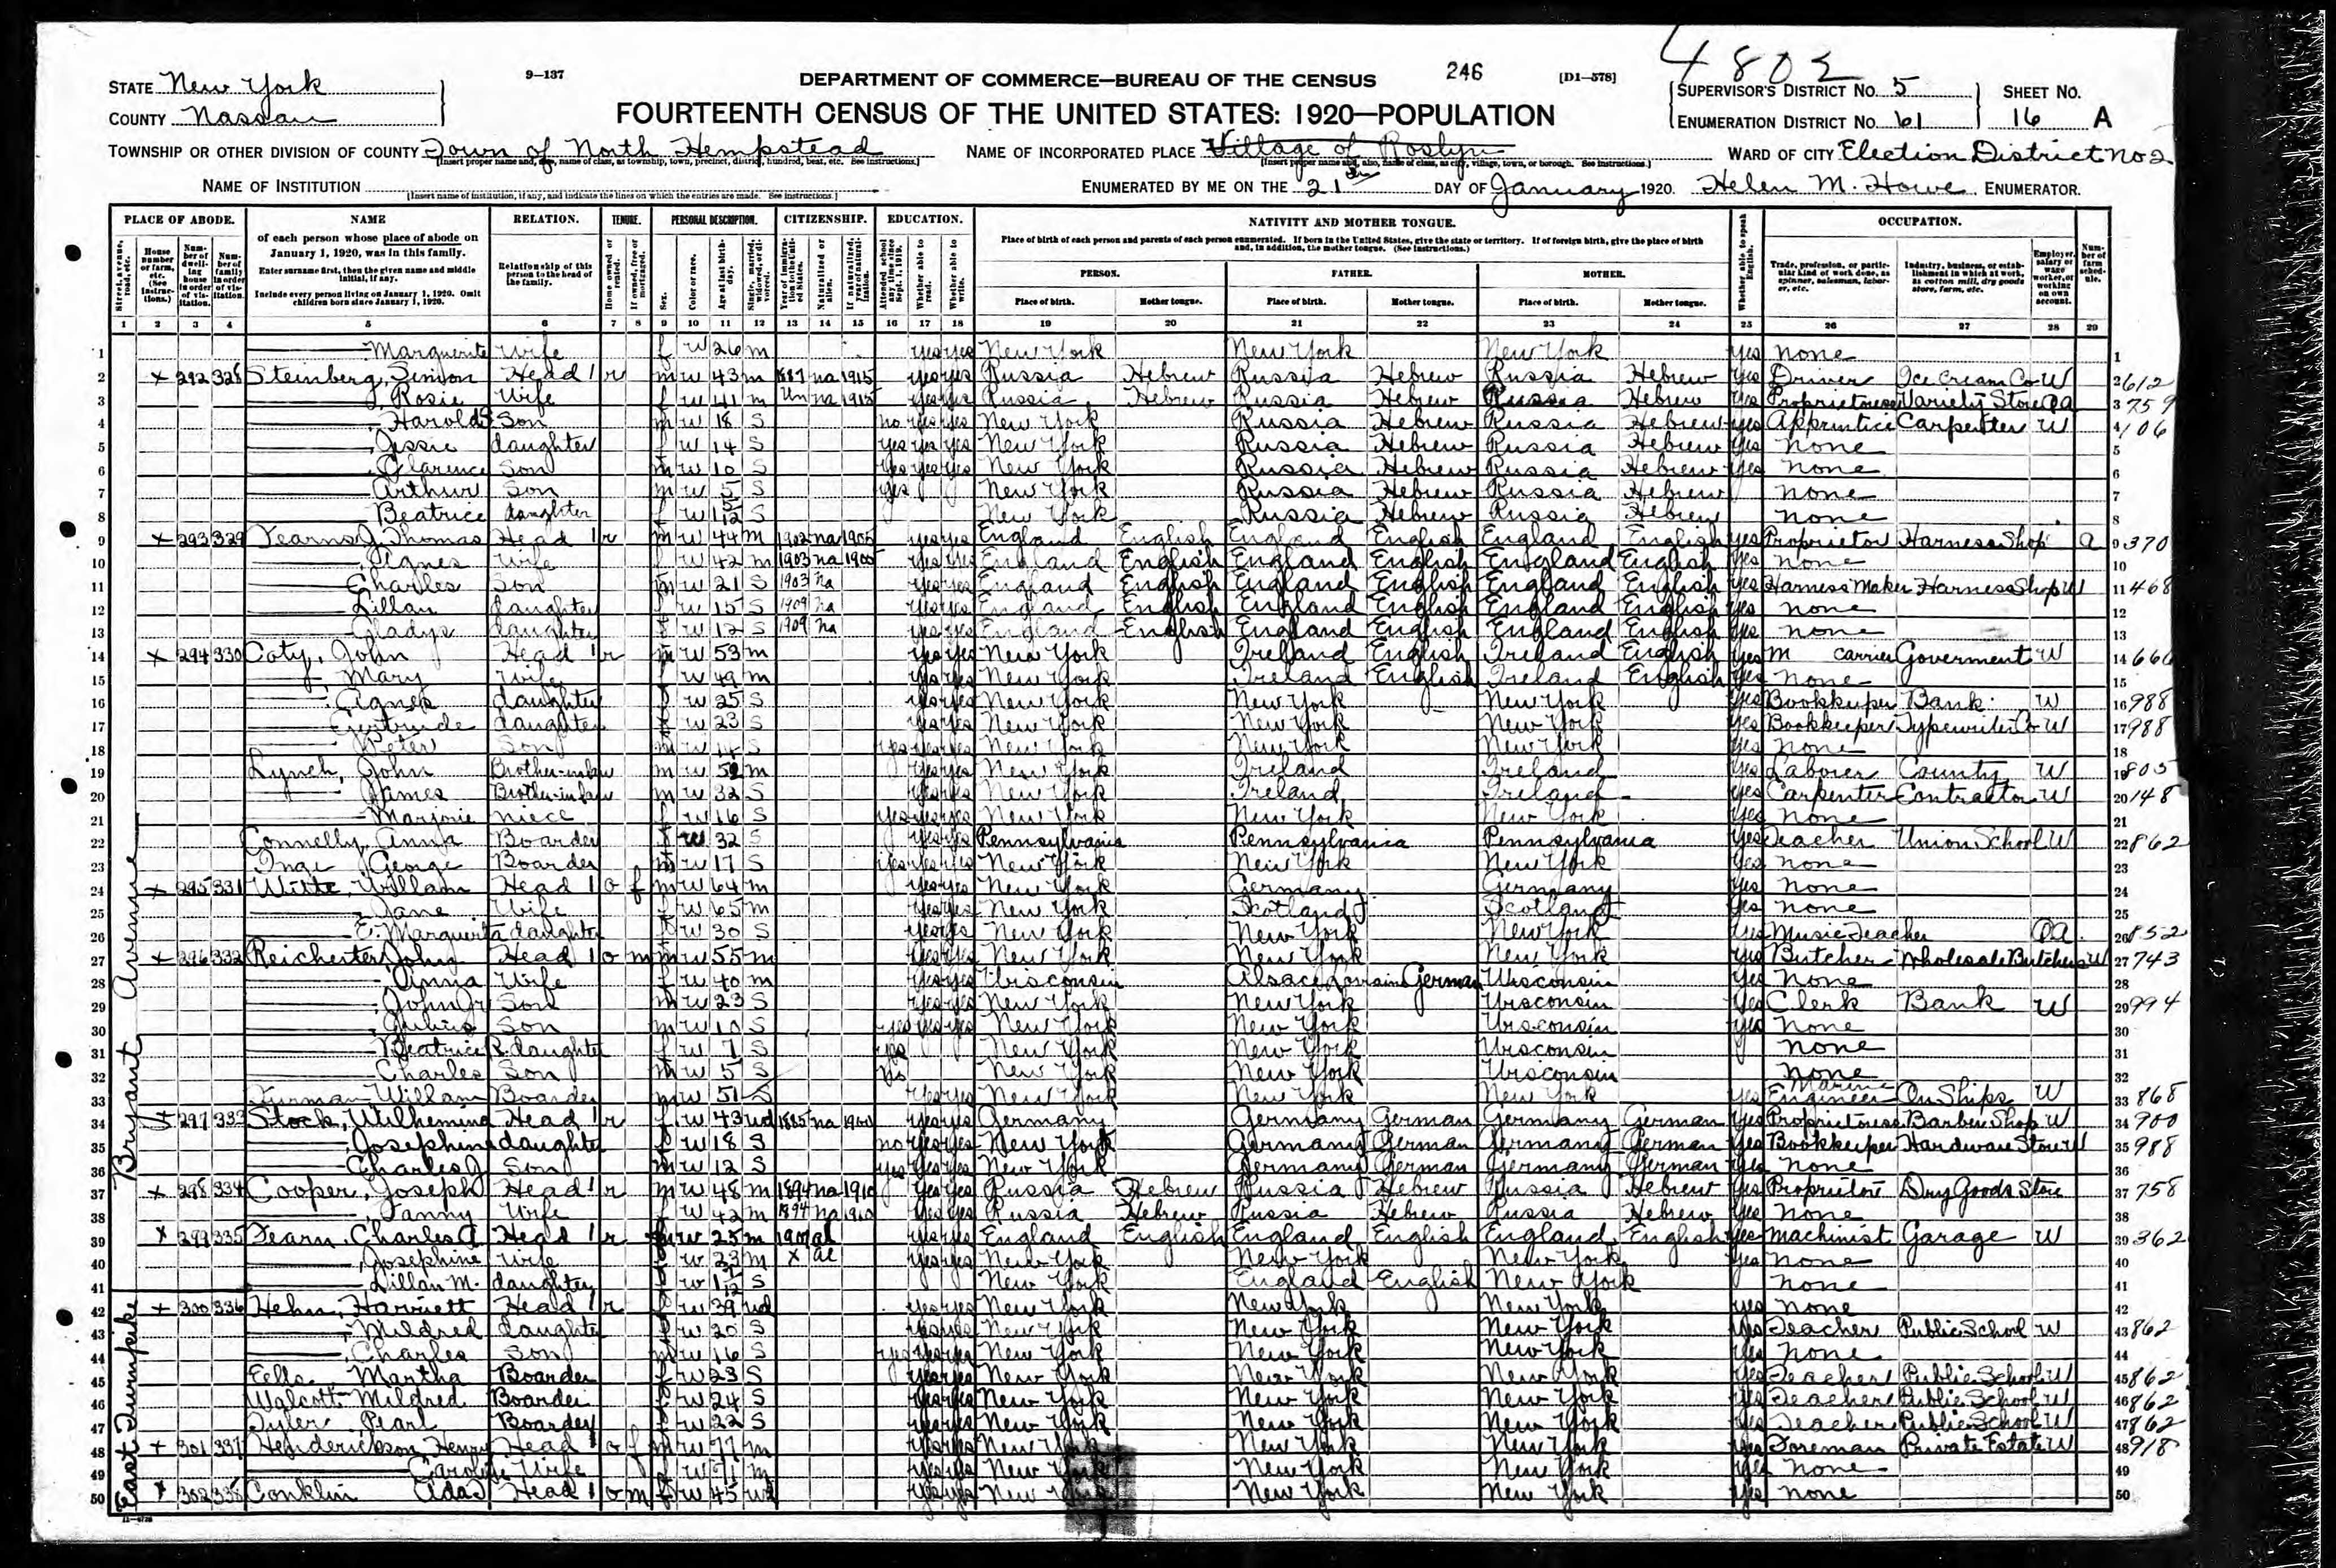 4802
STATE New York 9—137 DEPARTMENT OF COMMERCE—BUREAU OF THE CENSUS 246 [D1—578] SUPERVISOR'S DISTRICT No. 5 SHEET No.
COUNTY Nassau FOURTEENTH CENSUS OF THE UNITED STATES: 1920—POPULATION ENUMERATION DISTRICT No. 61 16 A
TOWNSHIP OR OTHER DIVISION OF COUNTY Town of North Hempstead NAME OF INCORPORATED PLACE Village of Roslyn WARD OF CITY Election District No 2
NAME OF INSTITUTION ENUMERATED BY ME ON THE 21 DAY OF January 1920. Helen M. Howe ENUMERATOR.
[Insert name of institution, if any, and indicate the lines on which the entries are made. See instructions.]
PLACE OF ABODE. NAME RELATION. TENURE. PERSONAL DESCRIPTION. CITIZENSHIP. EDUCATION. NATIVITY AND MOTHER TONGUE. OCCUPATION.
of each person whose place of abode on January 1, 1920, was in this family.
Enter surname first, then the given name and middle initial, if any.
Include every person living on January 1, 1920. Omit children born since January 1, 1920.
Relationship of this person to the head of the family.
Place of birth of each person and parents of each person enumerated. If born in the United States, give the state or territory. If of foreign birth, give the place of birth and, in addition, the mother tongue. (See instructions.)
PERSON. FATHER. MOTHER.
Place of birth. Mother tongue. Place of birth. Mother tongue. Place of birth. Mother tongue.
1 2 3 4 5 6 7 8 9 10 11 12 13 14 15 16 17 18 19 20 21 22 23 24 25 26 27 28 29
1 Marguerite Wife f W 26 m yes yes New York New York New York yes none 1
2 292 328 Steinberg, Simon Head 1 r m W 43 m na 1915 yes yes Russia Hebrew Russia Hebrew Russia Hebrew yes Driver Ice Cream Co W 2 612
3 Rosie Wife f W 41 m Un na 1915 yes yes Russia Hebrew Russia Hebrew Russia Hebrew yes Proprietoress Variety Store 3 759
4 Harold Son m W 18 S no yes yes New York Russia Hebrew Russia Hebrew yes Apprintice Carpenter W 4 106
5 Jessie daughter f W 14 S yes yes yes New York Russia Hebrew Russia Hebrew yes none 5
6 Clarence Son m W 10 S yes yes yes New York Russia Hebrew Russia Hebrew yes none 6
7 Arthur Son m W 5 S yes New York Russia Hebrew Russia Hebrew none 7
8 Beatrice daughter f W S New York Russia Hebrew Russia Hebrew none 8
9 293 329 Thomas Head 1 r m W 44 m 1902 na 1905 yes yes England English England English England English yes Proprietor Harness Shop a 9 370
10 Agnes Wife f W 42 m 1903 na 1905 yes yes England English England English England English yes none 10
11 Charles Son m W 21 S 1903 na yes yes England English England English England English yes Harness Maker Harness Shop W 11 468
12 Lillan daughter f W 15 S 1909 na yes yes England England English England English yes none 12
13 Gladys daughter f W 12 S 1909 na yes yes England English England English England English yes none 13
14 294 330 Coty, John Head 1 r m W 53 m yes yes New York Ireland English Ireland English yes m carrier Goverment W 14 666
15 Mary Wife f W 49 m yes yes New York Ireland English Ireland English yes none 15
16 Agnes daughter f W 25 S yes yes New York New York New York yes Bookkeeper Bank W 16 988
17 Gertrude daughter f W 23 S yes yes New York New York New York yes Bookkeeper Typewriter Co W 17 988
18 Peter Son m W 14 S yes yes yes New York New York New York yes none 18
19 Lynch, John Brother-in-law m W m yes yes New York Ireland Ireland yes Laborer County W 19 805
20 James Brother-in-law m W 32 S yes yes New York Ireland Ireland yes Carpenter Contractor W 20 148
21 Marjorie niece f W 16 S yes yes yes New York New York New York yes none 21
22 Connelly, Anna Boarder f W 32 S yes yes Pennsylvania Pennsylvania Pennsylvania yes Teacher Union School W 22 862
23 George Boarder m W 17 S yes yes yes New York New York New York yes none 23
24 295 331 Witte, William Head 1 o f m W 64 m yes yes New York Germany Germany yes none 24
25 Jane Wife f W 65 m yes yes New York Scotland Scotland yes none 25
26 E. Marguerite daughter f W 30 S yes yes New York New York New York yes Music Teacher OA 26 852
27 296 332 Reichester, John Head 1 o m m W 55 m yes yes New York New York New York yes Butcher Wholesale Butcher W 27 743
28 Anna Wife f W 40 m yes yes Wisconsin Alsace Lorraine German Wisconsin yes none 28
29 John Jr Son m W 23 S yes yes New York New York Wisconsin yes Clerk Bank W 29 994
30 Julius Son m W 10 S yes yes yes New York New York Wisconsin yes none 30
31 Beatrice R. daughter f W 7 S yes New York New York Wisconsin none 31
32 Charles Son m W 5 S New York New York Wisconsin none 32
33 Furman William Boarder m W 51 S yes yes New York New York New York yes Marine Engineer On Ships W 33 868
34 297 333 Stock, Wilhemina Head 1 r f W 43 wd 1885 na yes yes Germany Germany German Germany German yes Proprietoress Barber Shop W 34 900
35 Josephine daughter f W 18 S no yes yes New York Germany German Germany German yes Bookkeeper Hardware Store W 35 988
36 Charles J Son m W 12 S yes yes yes New York Germany German Germany German yes none 36
37 298 334 Cooper, Joseph Head 1 r m W 48 m 1894 na 1910 yes yes Russia Hebrew Russia Hebrew Russia Hebrew yes Proprietor Dry Goods Store 37 758
38 Fanny Wife f W 42 m 1894 na 1910 yes yes Russia Hebrew Russia Hebrew Russia Hebrew yes none 38
39 299 335 Fearn, Charles A Head 1 r m W 25 m al yes yes England English England English England English yes Machinist Garage W 39 362
40 Josephine Wife f W 23 m x al yes yes New York New York New York yes none 40
41 Lillan M. daughter f W S New York England English New York none 41
42 300 336 Hehn, Harriett Head 1 r f W 39 wd yes yes New York New York New York yes none 42
43 Mildred daughter f W 20 S yes yes New York New York New York yes Teacher Public School W 43 862
44 Charles Son m W 16 S yes yes yes New York New York New York yes none 44
45 Eells, Martha Boarder f W 23 S yes yes New York New York New York yes Teacher Public School W 45 862
46 Walcott Mildred Boarder f W 24 S yes yes New York New York New York yes Teacher Public School W 46 862
47 Tyler, Pearl Boarder f W 22 S yes yes New York New York New York yes Teacher Public School W 47 862
48 301 337 Henderickson, Henry Head 1 o f m W 77 m yes yes New York New York New York yes Foreman Private Estate W 48 918
49 Caroline Wife f W 71 m yes yes New York New York New York yes none 49
50 302 338 Conklin Ada Head 1 o m f W 45 wd yes yes New York New York New York yes none 50
Bryant Avenue
East Turnpike